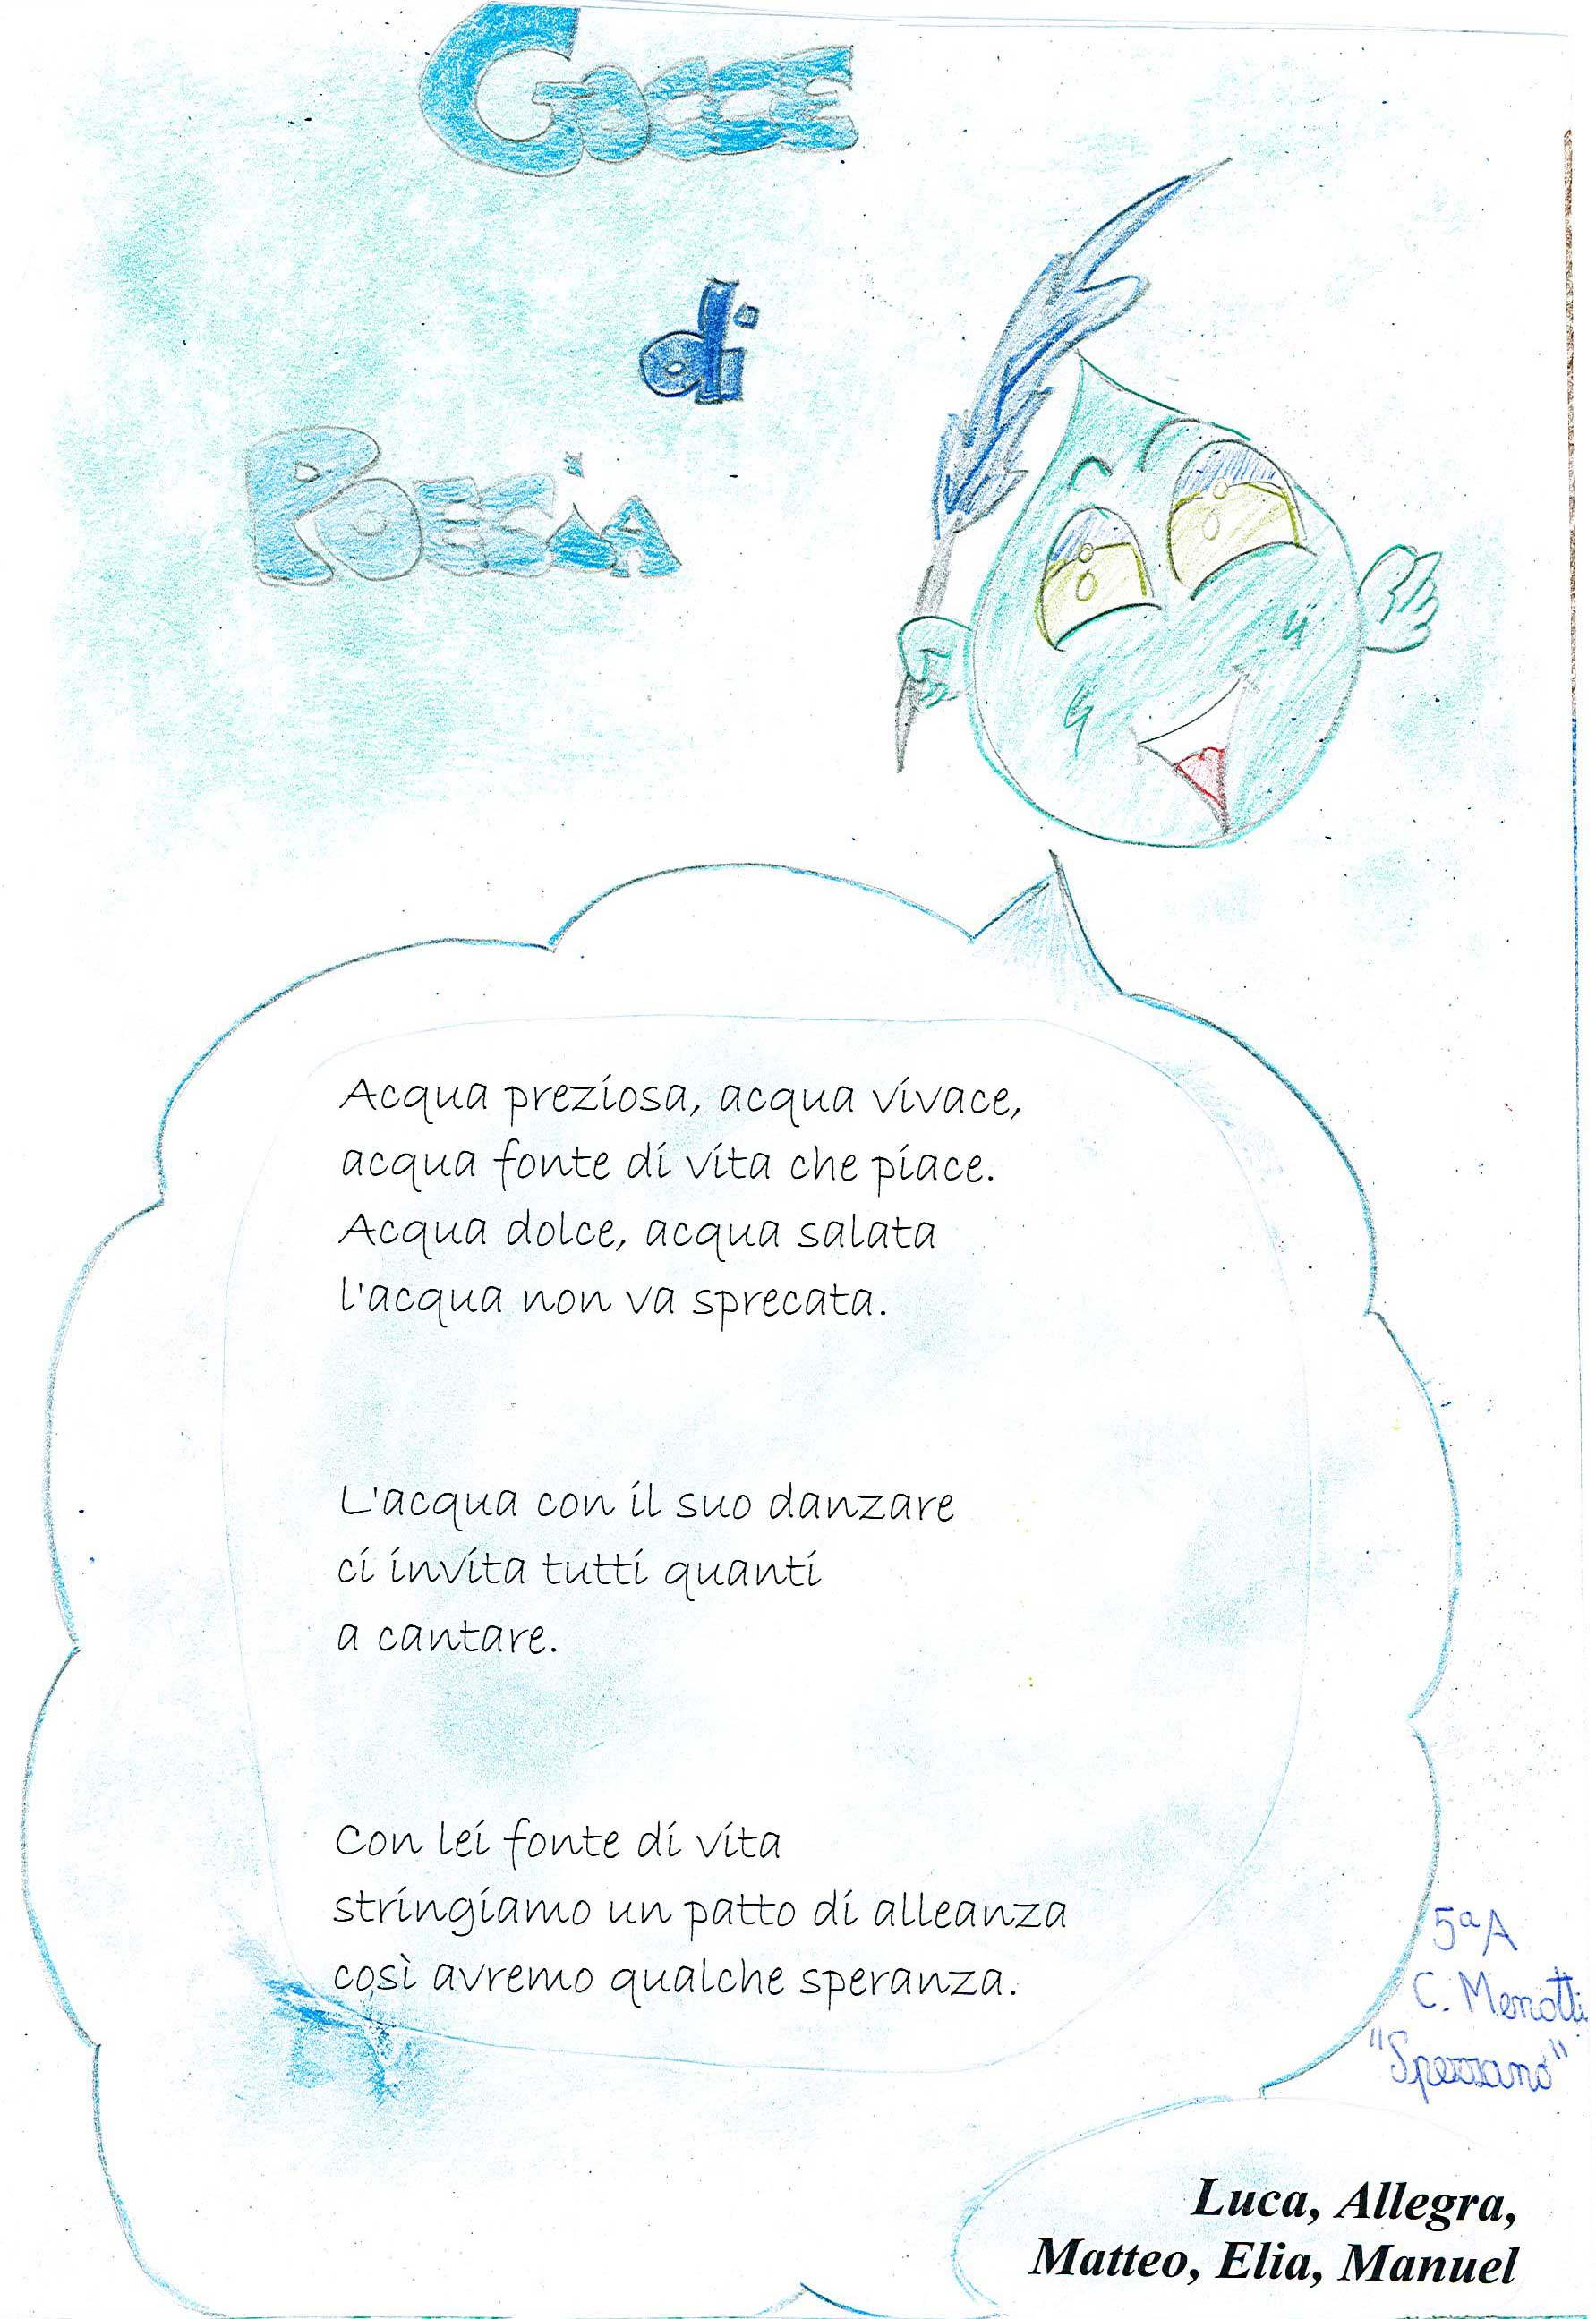 GOCCE
di
POESiA
Acqua preziosa, acqua vivace,
acqua fonte di vita che piace.
Acqua dolce, acqua salata
l'acqua non va sprecata.
L'acqua con il suo danzare
ci invita tutti quanti
a cantare.
Con lei fonte di vita
stringiamo un patto di alleanza
così avremo qualche speranza.
5ª A
C. Menotti
"Spezzano"
Luca, Allegra,
Matteo, Elia, Manuel